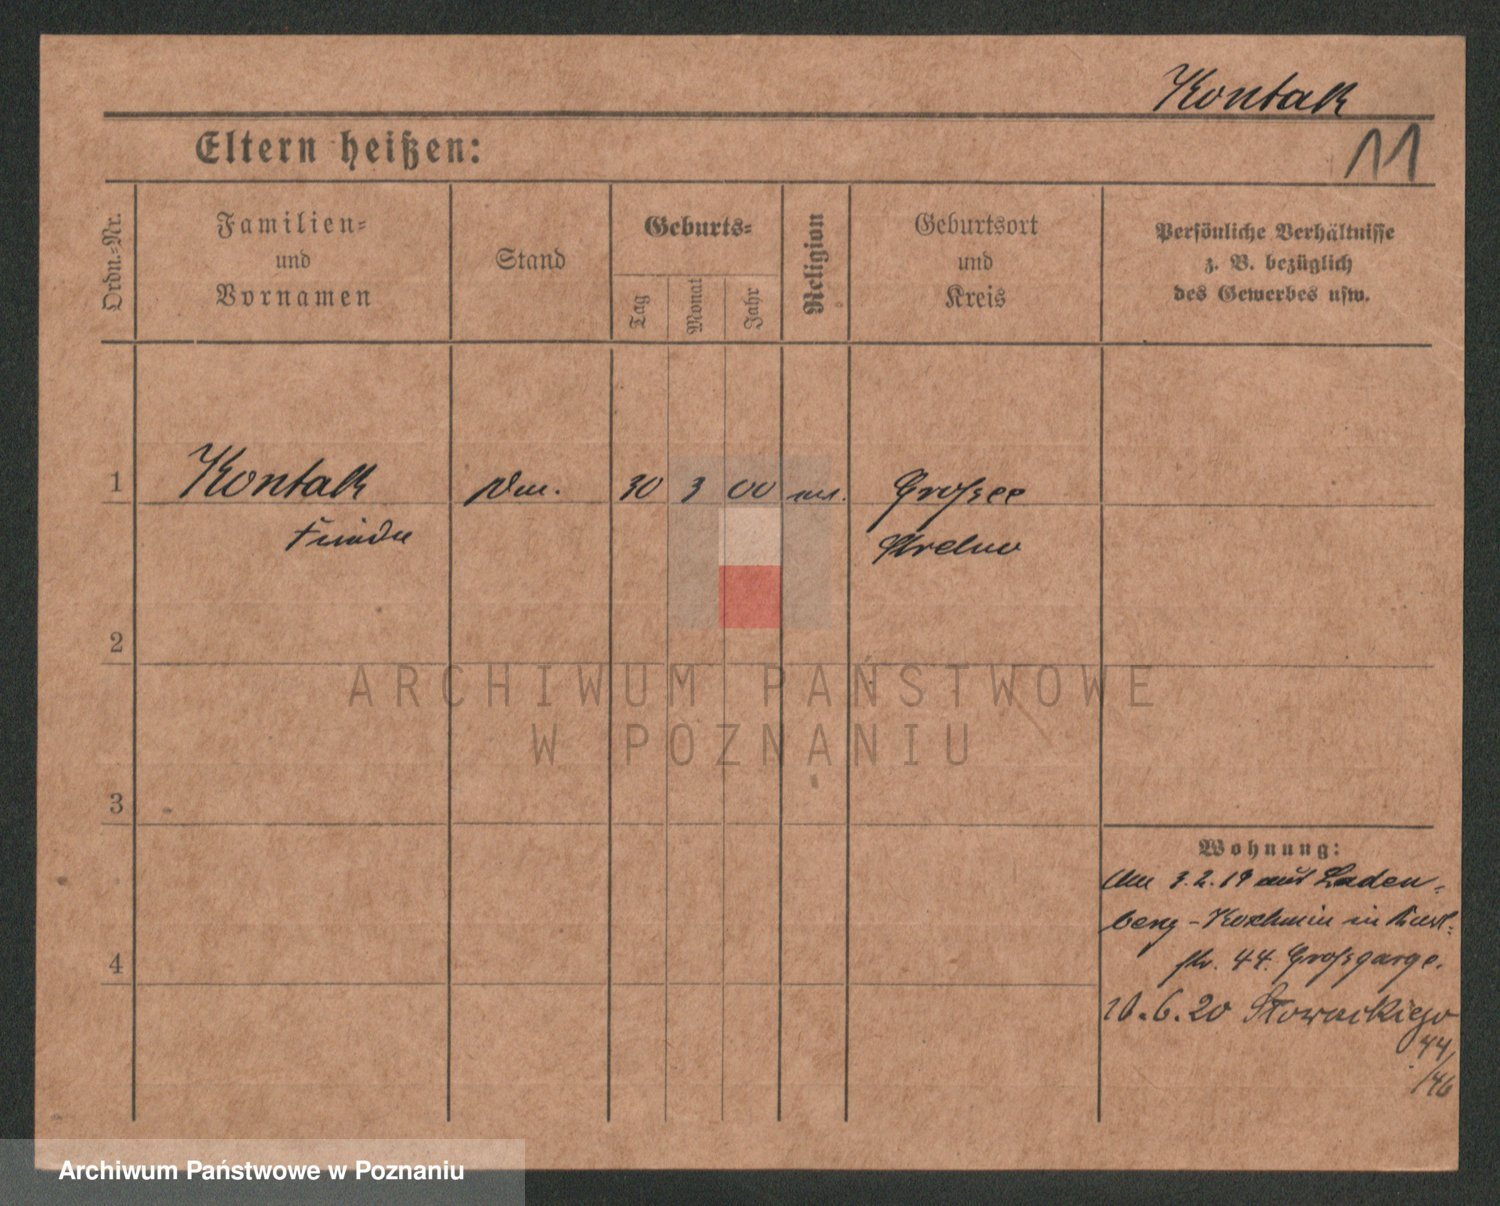 Kontak
11
Eltern heißen:
Ordn.-Nr.
Familien-
und
Vornamen
Stand
Geburts-
Tag
Monat
Jahr
Religion
Geburtsort
und
Kreis
Persönliche Verhältnisse
z. B. bezüglich
des Gewerbes usw.
1
Kontak
30 3 00
Großsee
Strelno
2
ARCHIWUM PAŃSTWOWE
W POZNANIU
3
4
Wohnung:
3.2.19 aus Laden-
berg - in
str. 44.
10.6.20 Słowackiego
44
/46
Archiwum Państwowe w Poznaniu